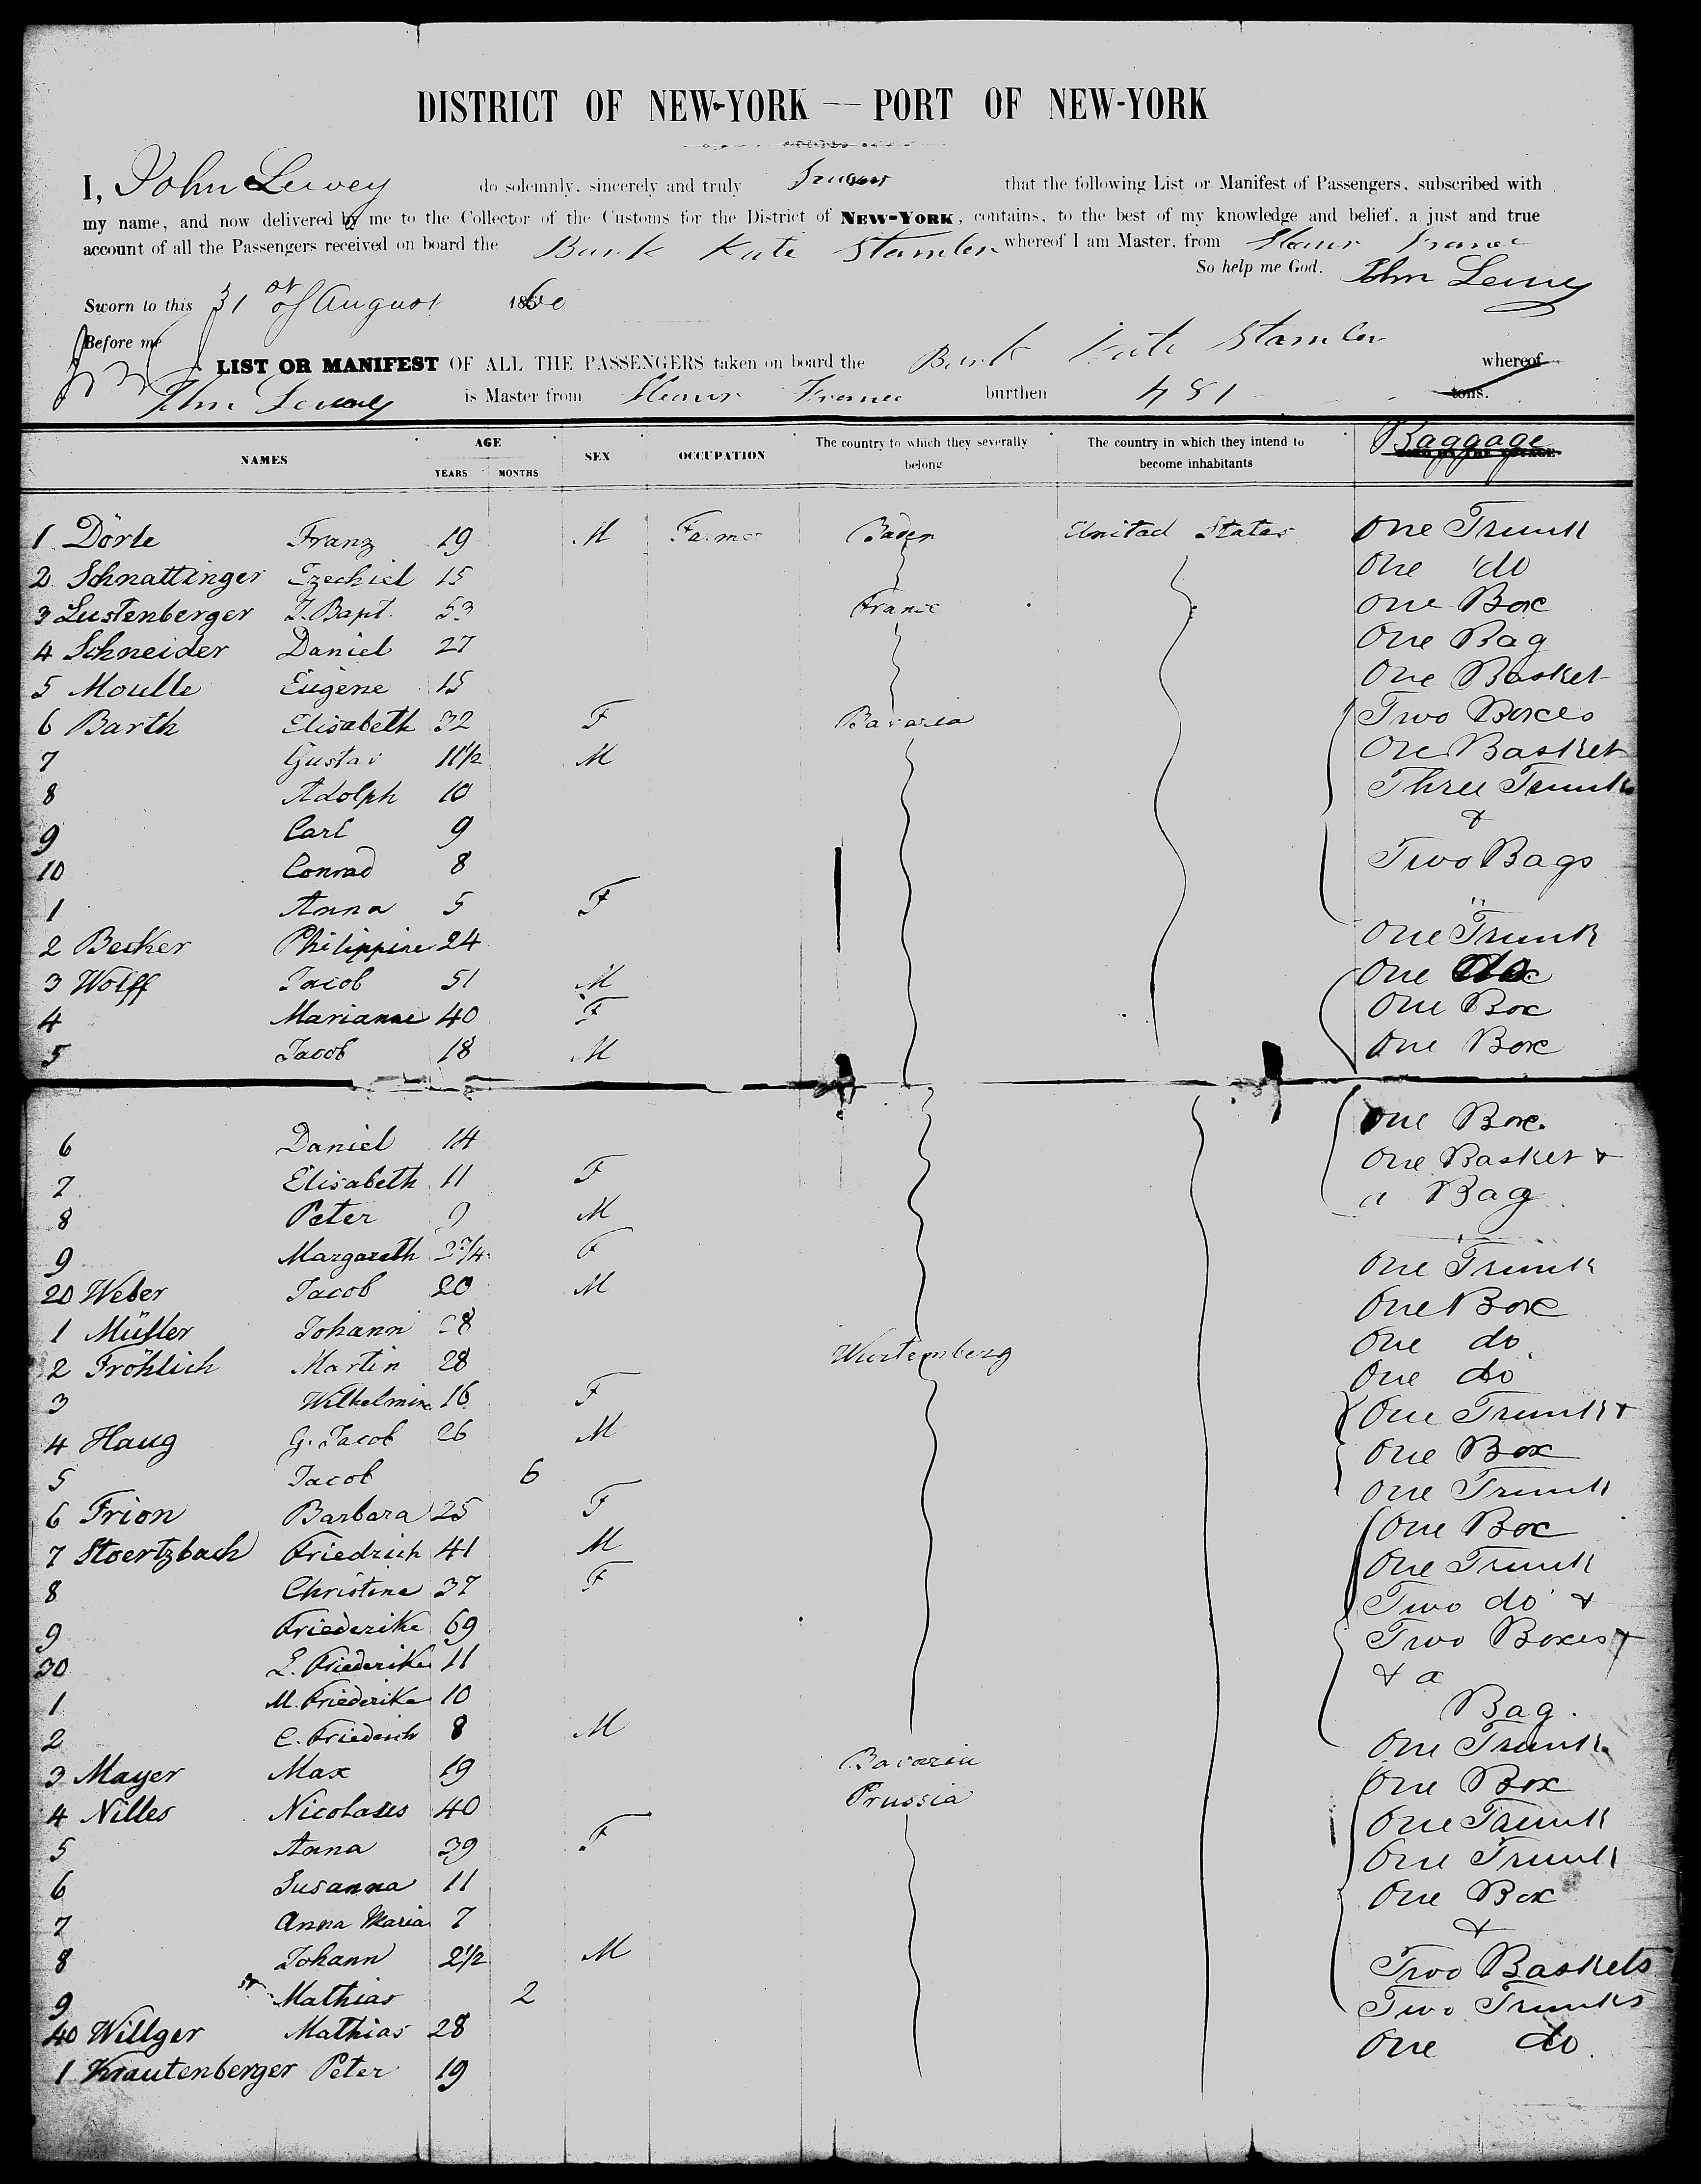 DISTRICT OF NEW-YORK — PORT OF NEW-YORK
I, John Lewey do solemnly, sincerely and truly swear that the following List or Manifest of Passengers, subscribed with
my name, and now delivered by me to the Collector of the Customs for the District of NEW-YORK, contains, to the best of my knowledge and belief, a just and true
account of all the Passengers received on board the Bark Kate Stamler whereof I am Master, from Havre France
So help me God. John Lewey
Sworn to this 31 st of August 1860
Before me
LIST OR MANIFEST OF ALL THE PASSENGERS taken on board the Bark Kate Stamler whereof
John Lewey is Master from Havre France burthen 481 tons.
NAMES AGE YEARS MONTHS SEX OCCUPATION The country to which they severally belong The country in which they intend to become inhabitants Baggage
1 Dörle Franz 19 M Farmer Baden United States One Trunk
2 Schnattinger Ezechiel 15 One do
3 Lustenberger J. Bapt. 53 France One Box
4 Schneider Daniel 27 One Bag
5 Moulle Eugène 15 One Basket
6 Barth Elisabeth 32 F Bavaria Two Boxes
7 Gustav 11 1/2 M One Basket
8 Adolph 10 Three Trunks
9 Carl 9 &
10 Conrad 8 Two Bags
1 Anna 5 F "
2 Becker Philippine 24 One Trunk
3 Wolff Jacob 51 M One
4 Marianne 40 F One Box
5 Jacob 18 M One Box
6 Daniel 14 One Box
7 Elisabeth 11 F One Basket &
8 Peter 9 M a Bag
9 Margareth 2 3/4 F One Trunk
20 Weber Jacob 20 M One Box
1 Müller Johann 28 One do
2 Fröhlich Martin 28 Wurtemberg One do
3 Wilhelmine 16 F One Trunk &
4 Haug G. Jacob 26 M One Box
5 Jacob 6 One Trunk
6 Frion Barbara 25 F One Box
7 Stoertzbach Friedrich 41 M One Trunk
8 Christine 37 F Two do &
9 Friederike 69 Two Boxes &
30 L. Friederike 11 & a
1 M. Friederike 10 Bag.
2 C. Friedrich 8 M One Trunk
3 Mayer Max 19 Bavaria One Box
4 Nilles Nicolaus 40 Prussia One Trunk
5 Anna 39 F One Trunk
6 Susanna 11 One Box
7 Anna Maria 7 &
8 Johann 2 1/2 M Two Baskets
9 Mathias 2 Two Trunks
40 Willger Mathias 28 One do.
1 Krautenberger Peter 19